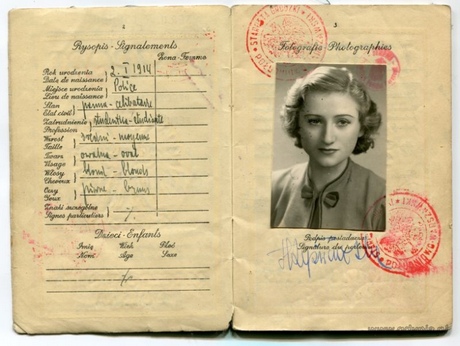 4
Rysopis - Signalements
Żona - Femme
Rok urodzenia
Date de naissance
2. I 1914
Miejsce urodzenia
Lieu de naissance
Police
Stan
Etat civil
panna - célibataire
Zatrudnienie
Profession
studentka - étudiante
Wzrost
Taille
średni - moyenne
Twarz
Visage
owalna - oval
Włosy
Cheveux
blond - blonds
Oczy
Yeux
piwne
Znaki szczególne
Signes particuliers
Dzieci - Enfants
Imię Wiek Płeć
Nom Age Sexe
5
Fotografie - Photographies
Podpis posiadacza
Signature du porteur